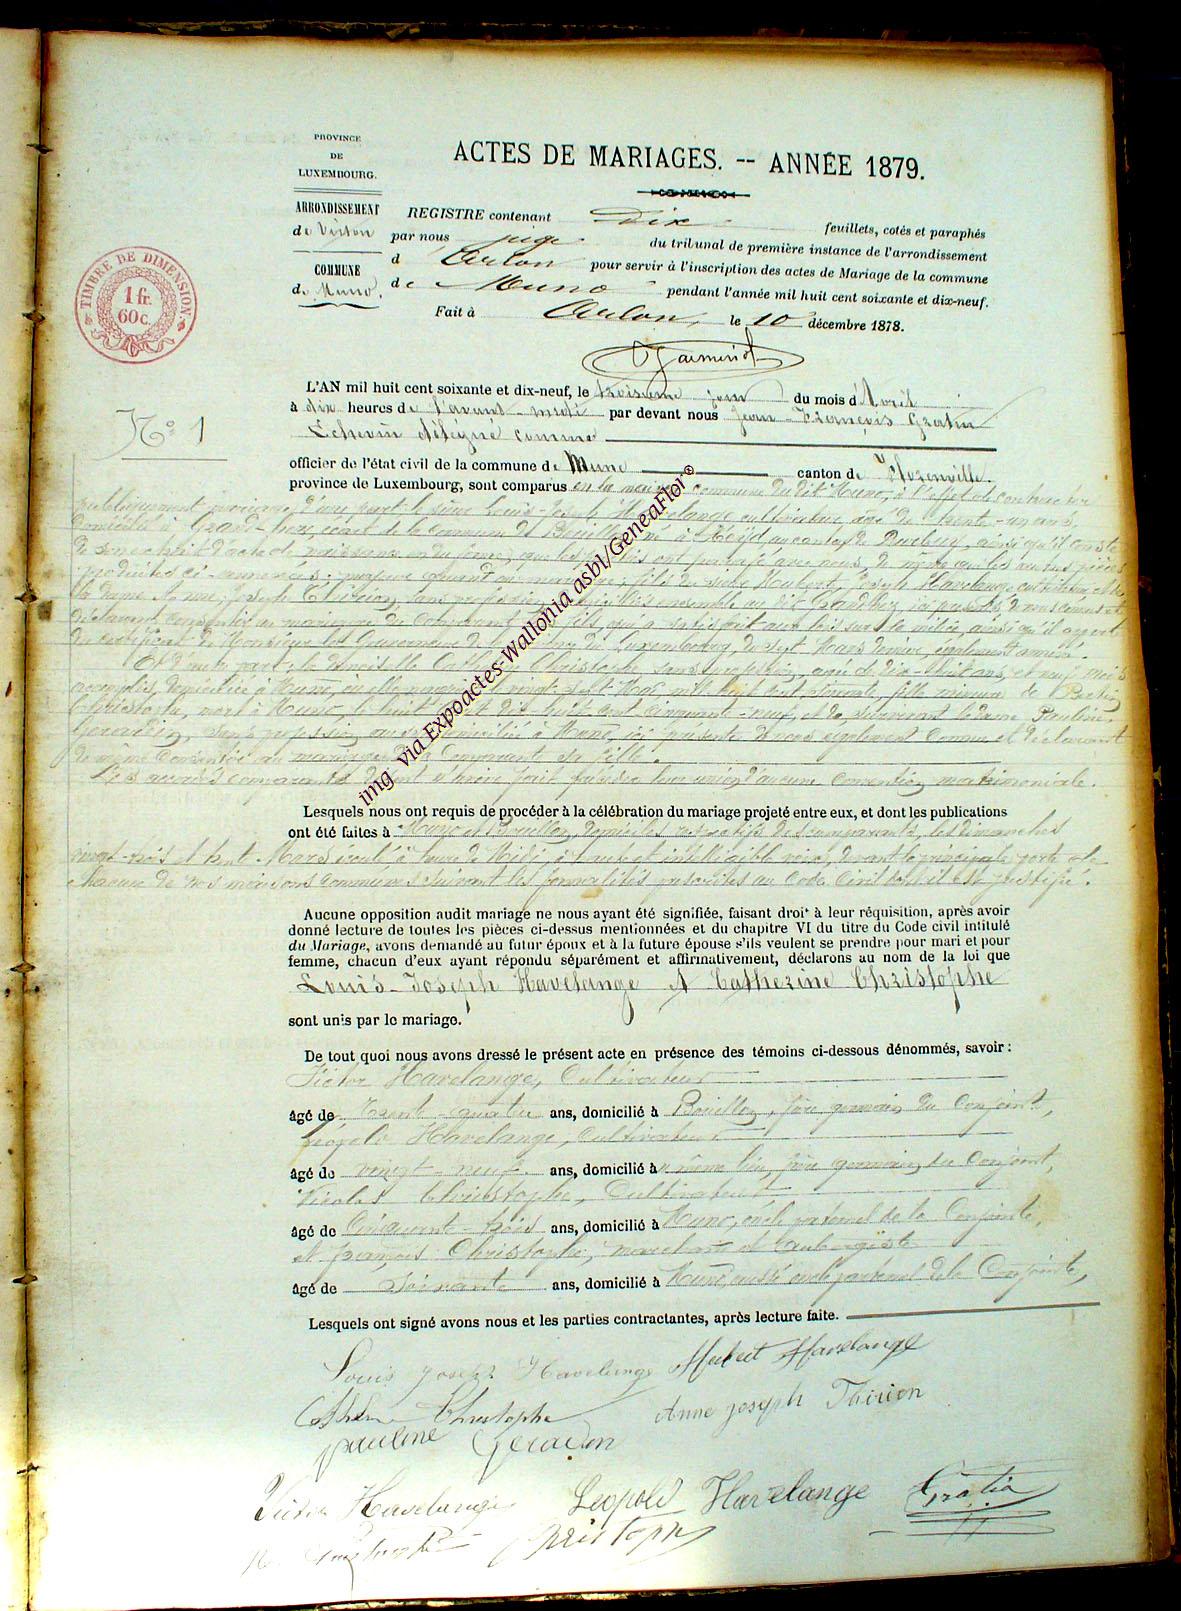 PROVINCE
DE
LUXEMBOURG.
ACTES DE MARIAGES. -- ANNÉE 1879.
ARRONDISSEMENT
de Virton
COMMUNE
de Muno.
REGISTRE contenant Dix feuillets, cotés et paraphés
par nous juge du tribunal de première instance de l'arrondissement
d Arlon pour servir à l'inscription des actes de Mariage de la commune
de Muno pendant l'année mil huit cent soixante et dix-neuf.
Fait à Arlon, le 10 décembre 1878.
TIMBRE DE DIMENSION
1 fr.
60 c.
N° 1
L'AN mil huit cent soixante et dix-neuf, le troisième jour du mois d'Avril
à dix heures de l'avant-midi par devant nous Jean-François Gratia
Echevin délégué comme
officier de l'état civil de la commune de Muno canton de Florenville.
province de Luxembourg, sont comparus en la maison commune du dit Muno, à l'effet de contracter
publiquement mariage, d'une part le sieur Louis-Joseph Havelange, cultivateur, âgé de trente-un ans,
domicilié à de la commune de Bouillon, né à Heyd au canton de Durbuy, ainsi qu'il conste
de son extrait d'acte de naissance en due forme, que les ont paraphé avec nous, de même que les autres pièces
produites ci-annexées; majeur quant au mariage, fils du sieur Hubert Joseph Havelange, cultivateur, et de
la dame Anne-Joseph Thirion, sans profession, domiciliés ensemble au dit ici présents, de nous connus et
déclarant consentir au mariage du comparant fils, qui a satisfait aux lois sur la milice ainsi qu'il appert
du certificat de Monsieur le Gouverneur de la province du Luxembourg, du sept Mars dernier, également annexé.
Et d'autre part, la demoiselle Catherine Christophe, sans profession, âgée de dix-huit ans, et neuf mois
accomplis, domiciliée à Muno, où elle naquit le vingt-sept mil huit cent soixante, fille mineure de
Christophe, mort à Muno, le huit dix-huit cent cinquante-neuf, et de survivant le dame Pauline
Gerardin, sans profession domiciliée à Muno, ici présente de nous également connue et déclarant
de même consentir au mariage de la comparante sa fille.
Les comparants disent n'avoir fait précéder leur union d'aucune convention matrimoniale.
Lesquels nous ont requis de procéder à la célébration du mariage projeté entre eux, et dont les publications
ont été faites à Muno et Bouillon, domiciles respectifs des comparants, les dimanches
vingt-trois et trente Mars écoulé à l'heure de Midi, à haute et intelligible voix, devant la principale porte de
chacune de nos maisons communes suivant les formalités prescrites au Code Civil dont il est justifié.
Aucune opposition audit mariage ne nous ayant été signifiée, faisant droit à leur réquisition, après avoir
donné lecture de toutes les pièces ci-dessus mentionnées et du chapitre VI du titre du Code civil intitulé
du Mariage, avons demandé au futur époux et à la future épouse s'ils veulent se prendre pour mari et pour
femme, chacun d'eux ayant répondu séparément et affirmativement, déclarons au nom de la loi que
Louis-Joseph Havelange et Catherine Christophe
sont unis par le mariage.
De tout quoi nous avons dressé le présent acte en présence des témoins ci-dessous dénommés, savoir:
Victor Havelange, Cultivateur
âgé de Trente-quatre ans, domicilié à Bouillon, frère germain du Conjoint,
Léopold Havelange, Cultivateur
âgé de vingt-neuf ans, domicilié à même lieu, frère germain du Conjoint,
Nicolas Christophe, Cultivateur
âgé de Cinquante-trois ans, domicilié à Muno, oncle paternel de la Conjointe,
et françois Christophe, marchand et aubergiste
âgé de Soixante ans, domicilié à Muno, aussi oncle paternel de la Conjointe,
Lesquels ont signé avons nous et les parties contractantes, après lecture faite.
Louis Joseph Havelange Hubert Havelange
Christophe Anne Joseph Thirion
pauline Geradin
Victor Havelange Leopold Havelange Gratia
N. Christophe Christophe
img via Expoactes-Wallonia asbl/GeneaFloi®